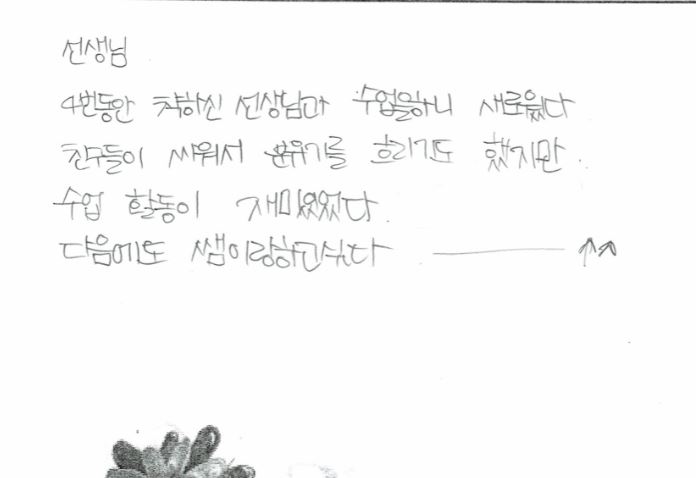 선생님
4번동안 착하신 선생님과 수업을하니 새로웠다
친구들이 싸워서 분위기를 흐리기도 했지만
수업 활동이 재미있었다
다음에도 쌤이랑하고싶다 ^^